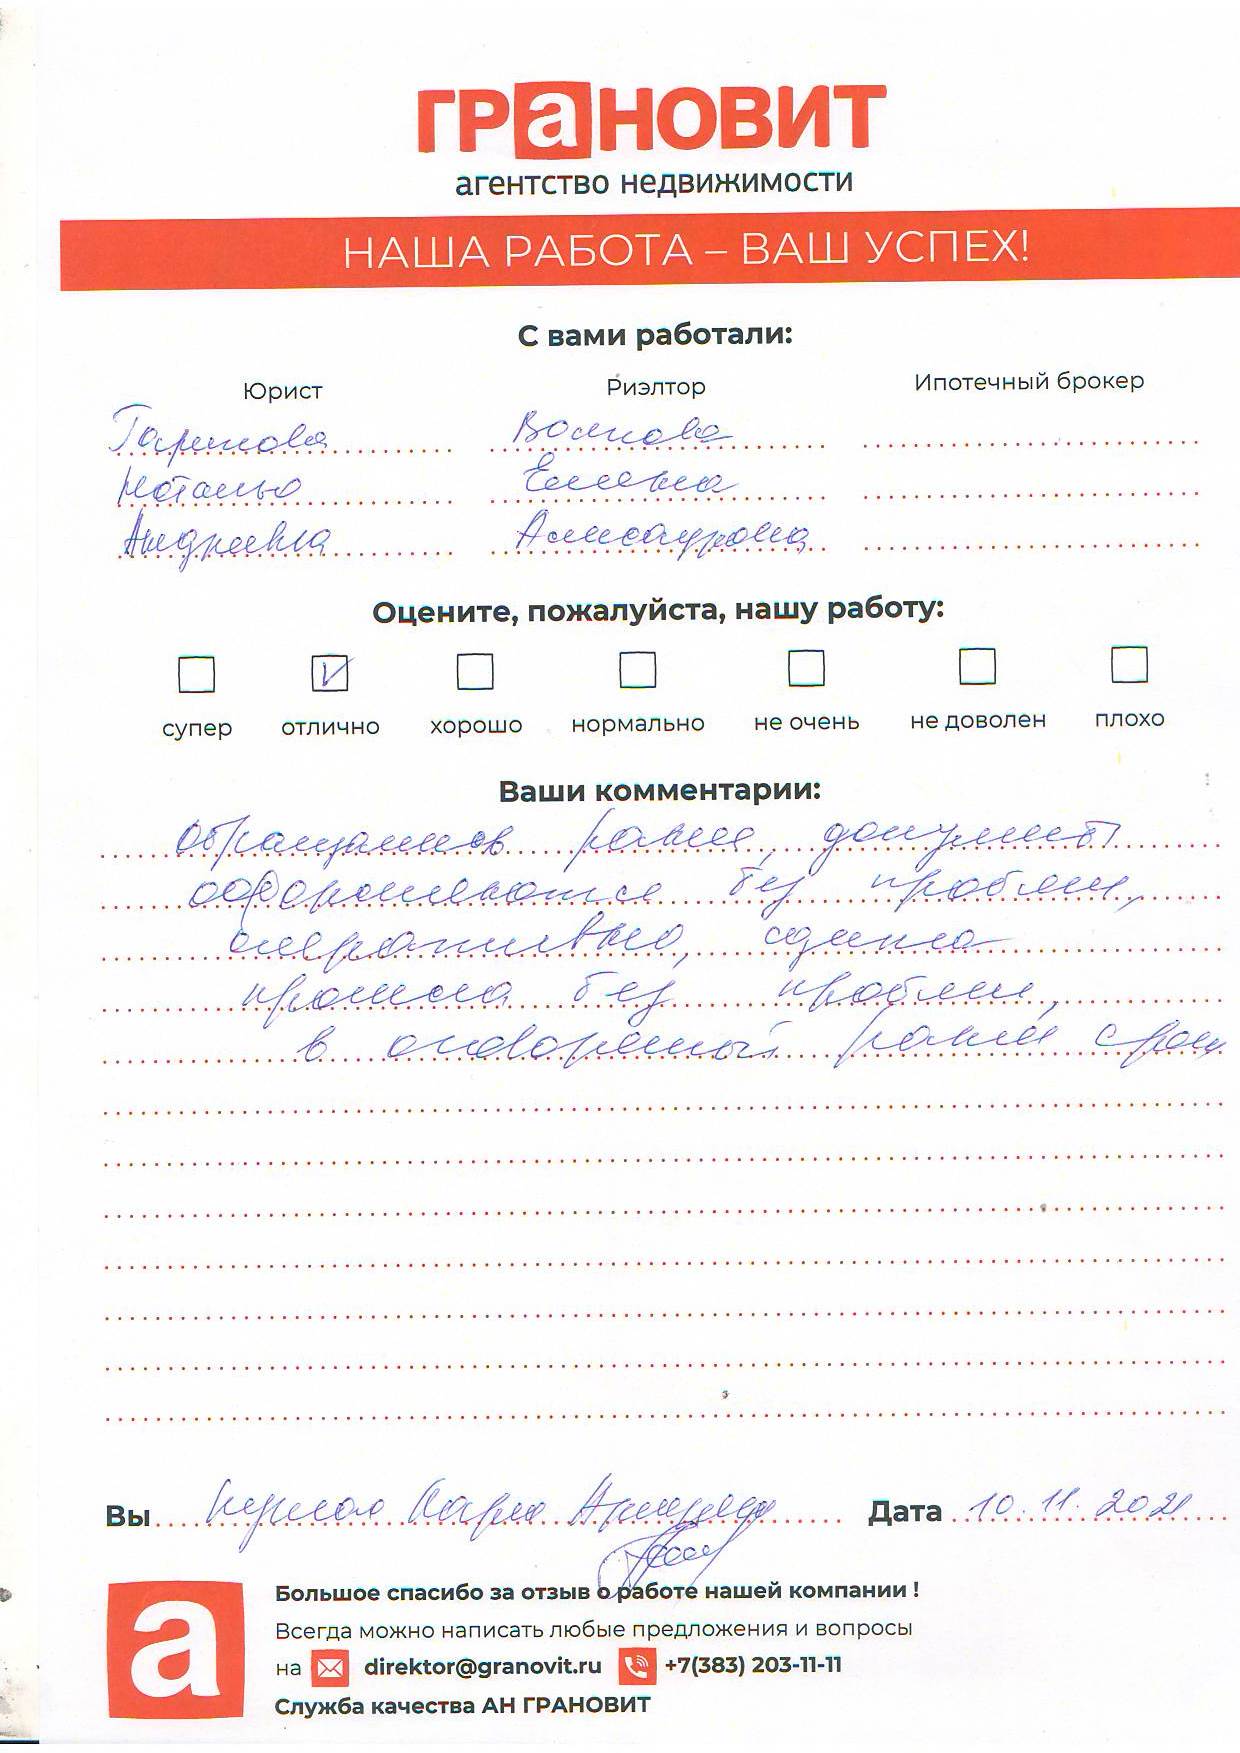 ГРаНОВИТ
агентство недвижимости
НАША РАБОТА – ВАШ УСПЕХ!
С вами работали:
Юрист Риэлтор Ипотечный брокер
Гаринова Волкова
Наталья Елена
Андреевна Александровна
Оцените, пожалуйста, нашу работу:
V
супер отлично хорошо нормально не очень не доволен плохо
Ваши комментарии:
обращались ранее, документы
оформляются без проблем,
оперативно, сделка
прошла без проблем,
в оговоренный ранее срок
Вы Дата 10.11.2021
Большое спасибо за отзыв о работе нашей компании !
Всегда можно написать любые предложения и вопросы
на direktor@granovit.ru +7(383) 203-11-11
а
Служба качества АН ГРАНОВИТ